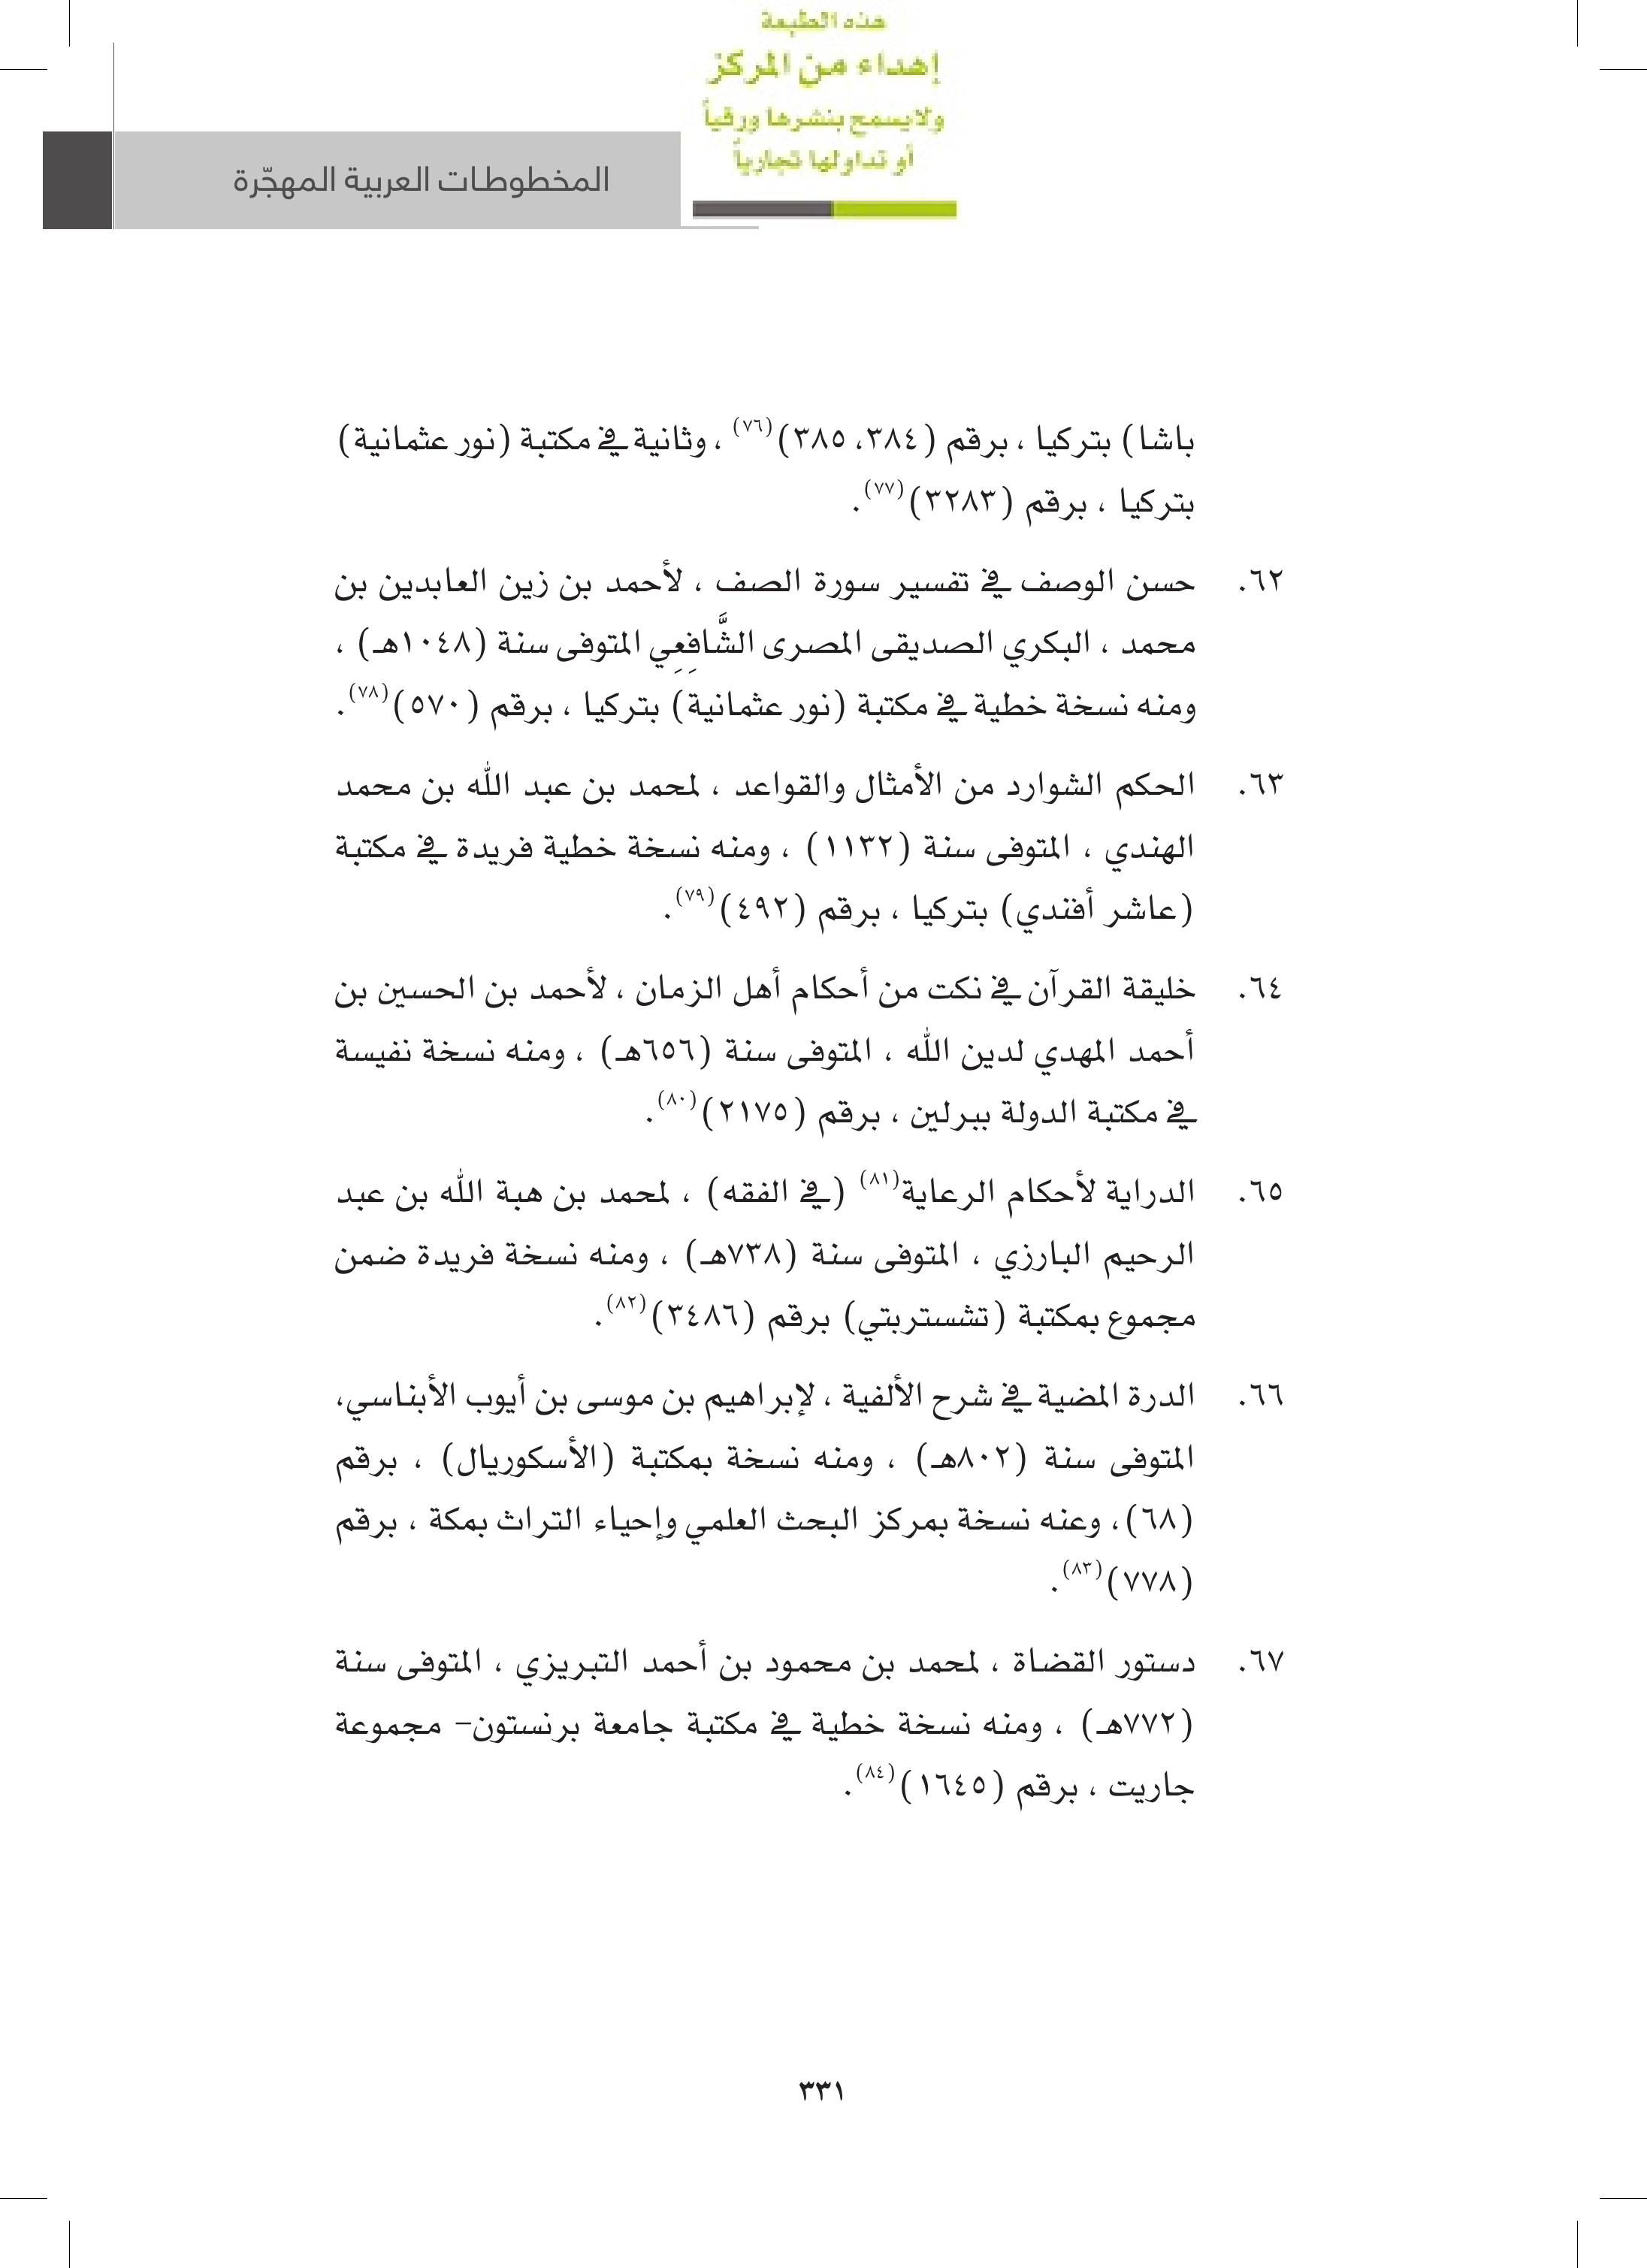 هذه الطبعة
إهداء من المركز
ولايسمح بنشرها ورقياً
أو تداولها تجارياً
المخطوطات العربية المهجّرة
باشا) بتركيا ، برقم (٣٨٤، ٣٨٥)(٧٦) ، وثانية في مكتبة (نور عثمانية)
بتركيا ، برقم (٣٢٨٣)(٧٧).
٦٢. حسن الوصف في تفسير سورة الصف ، لأحمد بن زين العابدين بن
محمد ، البكري الصديقى المصرى الشَّافِعِي المتوفى سنة (١٠٤٨هـ) ،
ومنه نسخة خطية في مكتبة (نور عثمانية) بتركيا ، برقم (٥٧٠)(٧٨).
٦٣. الحكم الشوارد من الأمثال والقواعد ، لمحمد بن عبد الله بن محمد
الهندي ، المتوفى سنة (١١٣٢) ، ومنه نسخة خطية فريدة في مكتبة
(عاشر أفندي) بتركيا ، برقم (٤٩٢)(٧٩).
٦٤. خليقة القرآن في نكت من أحكام أهل الزمان ، لأحمد بن الحسين بن
أحمد المهدي لدين الله ، المتوفى سنة (٦٥٦هـ) ، ومنه نسخة نفيسة
في مكتبة الدولة ببرلين ، برقم (٢١٧٥)(٨٠).
٦٥. الدراية لأحكام الرعاية(٨١) (في الفقه) ، لمحمد بن هبة الله بن عبد
الرحيم البارزي ، المتوفى سنة (٧٣٨هـ) ، ومنه نسخة فريدة ضمن
مجموع بمكتبة (تشستربتي) برقم (٣٤٨٦)(٨٢).
٦٦. الدرة المضية في شرح الألفية ، لإبراهيم بن موسى بن أيوب الأبناسي،
المتوفى سنة (٨٠٢هـ) ، ومنه نسخة بمكتبة (الأسكوريال) ، برقم
(٦٨)، وعنه نسخة بمركز البحث العلمي وإحياء التراث بمكة ، برقم
(٧٧٨)(٨٣).
٦٧. دستور القضاة ، لمحمد بن محمود بن أحمد التبريزي ، المتوفى سنة
(٧٧٢هـ) ، ومنه نسخة خطية في مكتبة جامعة برنستون– مجموعة
جاريت ، برقم (١٦٤٥)(٨٤).
٣٣١